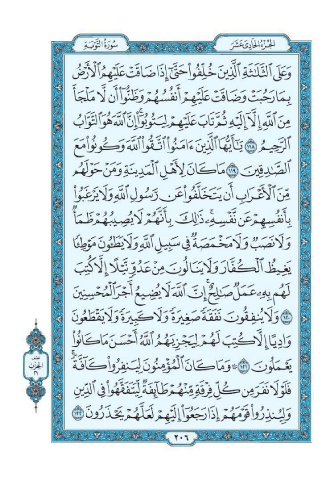 سُورَةُ التَّوْبَةِ
الجُزْءُ الحَادِي عَشَرَ
وَعَلَى ٱلثَّلَٰثَةِ ٱلَّذِينَ خُلِّفُوا۟ حَتَّىٰٓ إِذَا ضَاقَتْ عَلَيْهِمُ ٱلْأَرْضُ
بِمَا رَحُبَتْ وَضَاقَتْ عَلَيْهِمْ أَنفُسُهُمْ وَظَنُّوٓا۟ أَن لَّا مَلْجَأَ
مِنَ ٱللَّهِ إِلَّآ إِلَيْهِ ثُمَّ تَابَ عَلَيْهِمْ لِيَتُوبُوٓا۟ ۚ إِنَّ ٱللَّهَ هُوَ ٱلتَّوَّابُ
ٱلرَّحِيمُ ١١٨ يَٰٓأَيُّهَا ٱلَّذِينَ ءَامَنُوا۟ ٱتَّقُوا۟ ٱللَّهَ وَكُونُوا۟ مَعَ
ٱلصَّٰدِقِينَ ١١٩ مَا كَانَ لِأَهْلِ ٱلْمَدِينَةِ وَمَنْ حَوْلَهُم
مِّنَ ٱلْأَعْرَابِ أَن يَتَخَلَّفُوا۟ عَن رَّسُولِ ٱللَّهِ وَلَا يَرْغَبُوا۟
بِأَنفُسِهِمْ عَن نَّفْسِهِۦ ۚ ذَٰلِكَ بِأَنَّهُمْ لَا يُصِيبُهُمْ ظَمَأٌ
وَلَا نَصَبٌ وَلَا مَخْمَصَةٌ فِى سَبِيلِ ٱللَّهِ وَلَا يَطَـُٔونَ مَوْطِئًا
يَغِيظُ ٱلْكُفَّارَ وَلَا يَنَالُونَ مِنْ عَدُوٍّ نَّيْلًا إِلَّا كُتِبَ
لَهُم بِهِۦ عَمَلٌ صَٰلِحٌ ۚ إِنَّ ٱللَّهَ لَا يُضِيعُ أَجْرَ ٱلْمُحْسِنِينَ
١٢٠ وَلَا يُنفِقُونَ نَفَقَةً صَغِيرَةً وَلَا كَبِيرَةً وَلَا يَقْطَعُونَ
وَادِيًا إِلَّا كُتِبَ لَهُمْ لِيَجْزِيَهُمُ ٱللَّهُ أَحْسَنَ مَا كَانُوا۟
يَعْمَلُونَ ١٢١ ۞ وَمَا كَانَ ٱلْمُؤْمِنُونَ لِيَنفِرُوا۟ كَآفَّةً ۚ
فَلَوْلَا نَفَرَ مِن كُلِّ فِرْقَةٍ مِّنْهُمْ طَآئِفَةٌ لِّيَتَفَقَّهُوا۟ فِى ٱلدِّينِ
وَلِيُنذِرُوا۟ قَوْمَهُمْ إِذَا رَجَعُوٓا۟ إِلَيْهِمْ لَعَلَّهُمْ يَحْذَرُونَ ١٢٢
٢٠٦